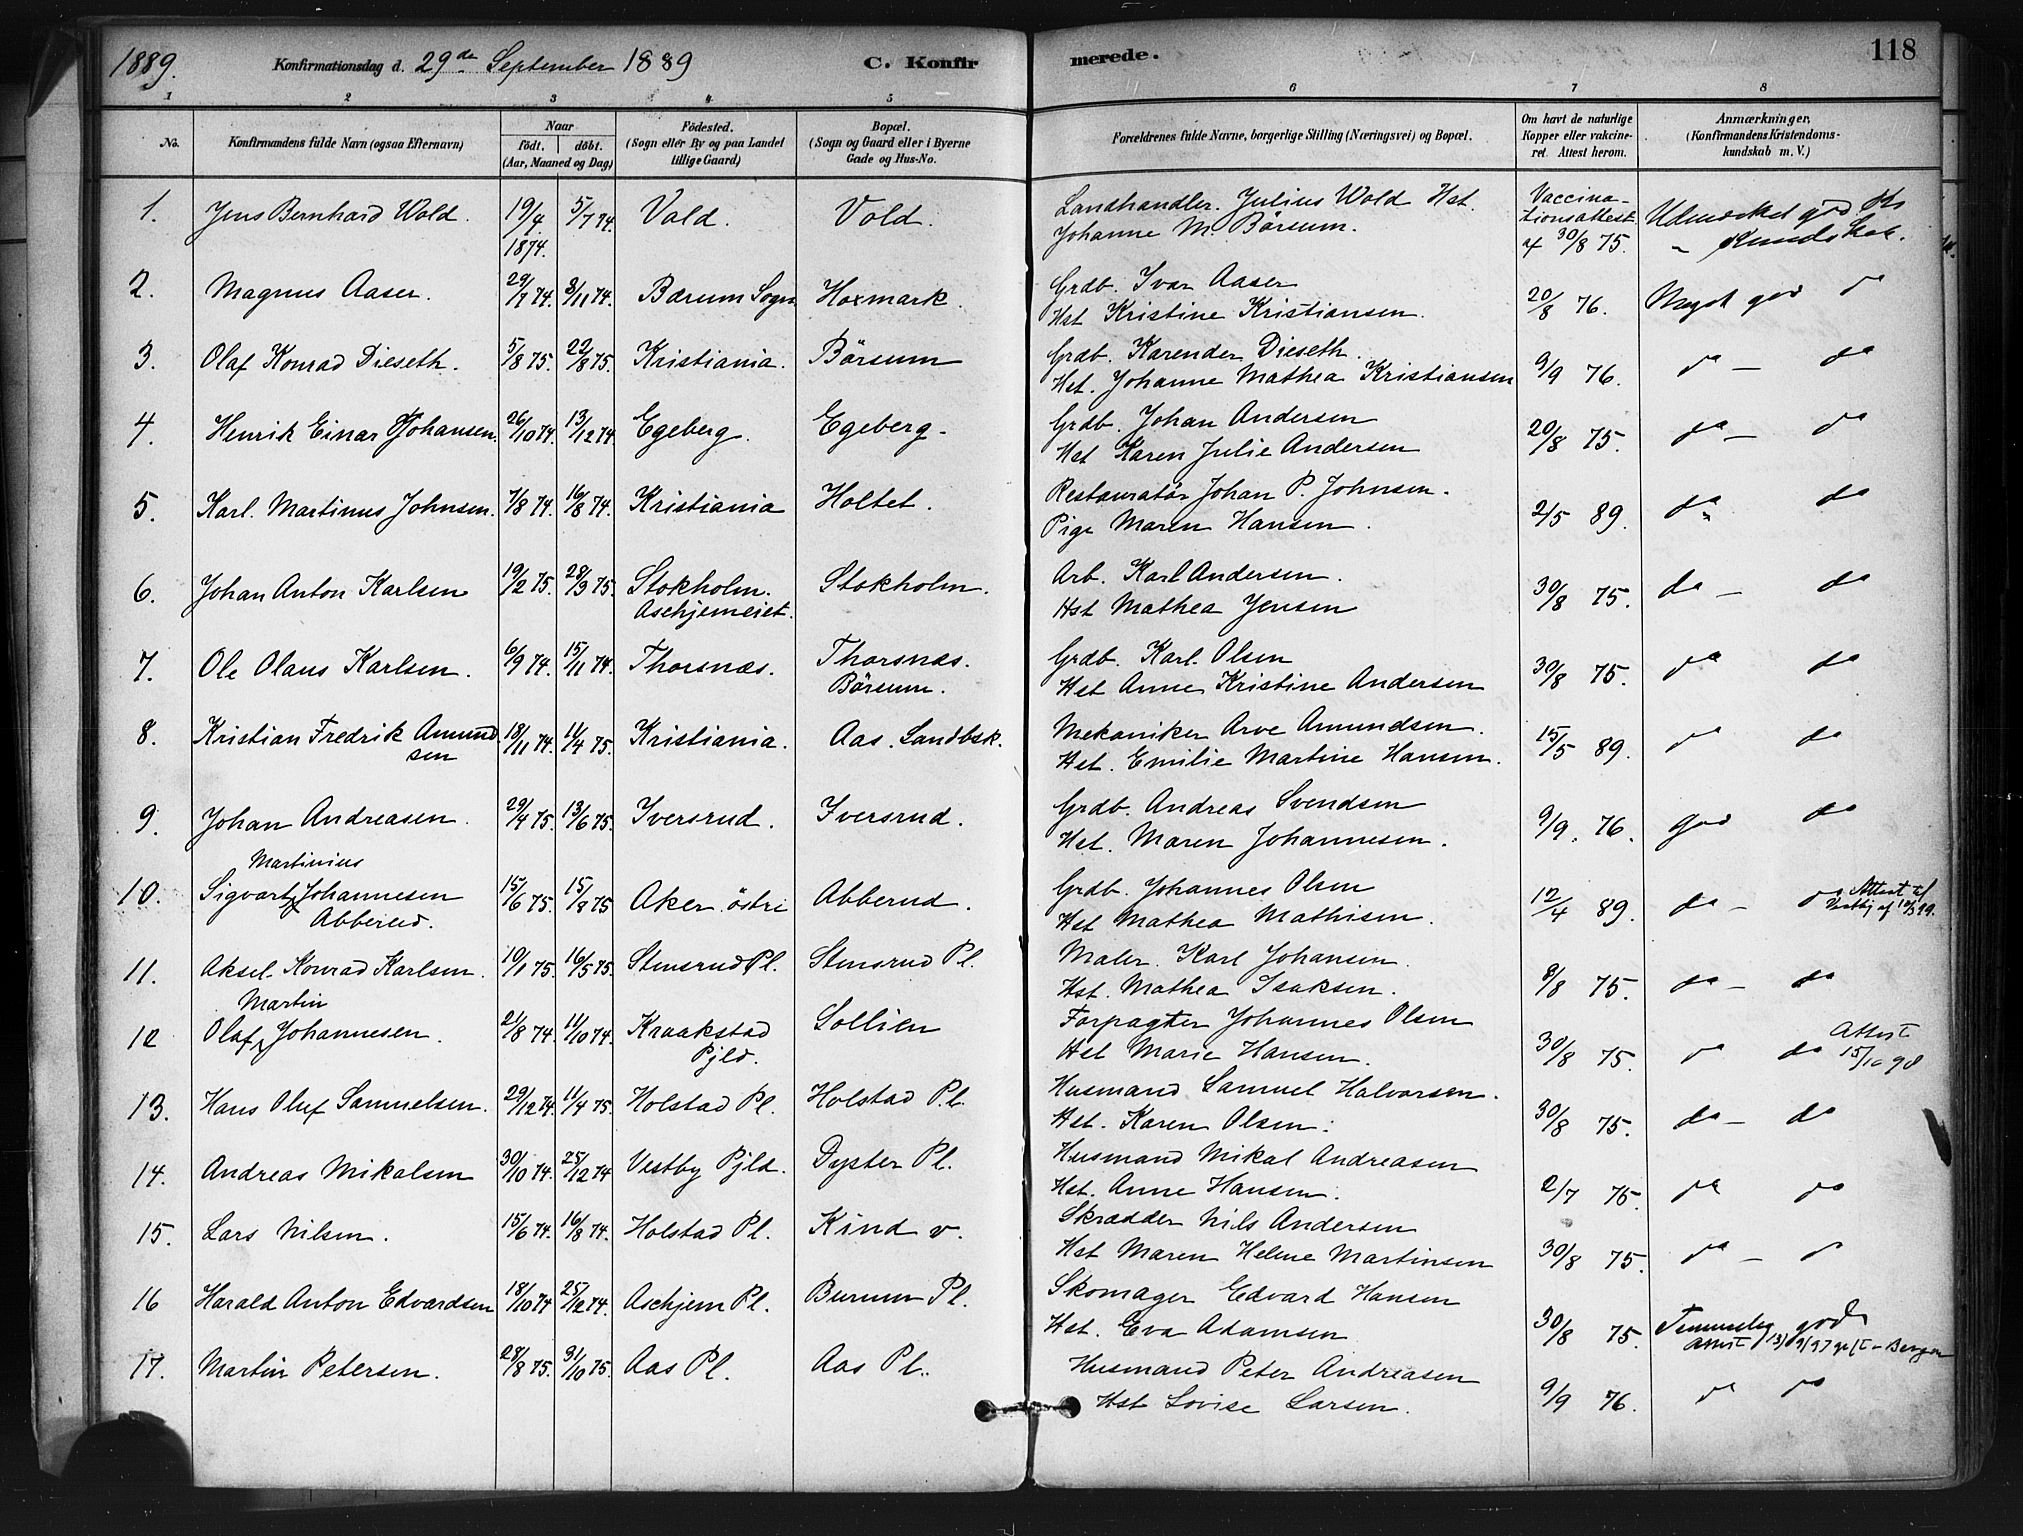 1889. Konfirmationsdag d. 29de September 1889 C. Konfirmerede. 118
1 2 3 4 5 6 7 8
No. Konfirmandens fulde Navn (ogsaa Efternavn) Naar født. døbt. (Aar, Maaned og Dag) Fødested. (Sogn eller By og paa Landet tillige Gaard) Bopæl. (Sogn og Gaard eller i Byerne Gade og Hus-No. Forældrenes fulde Navne, borgerlige Stilling (Næringsvei) og Bopæl. Om havt de naturlige Kopper eller vakcineret. Attest herom. Anmærkninger, (Konfirmandens Kristendomskundskab m. V.)
1. Jens Bernhard Wold. 19/4 1874. 5/7 74. Vold. Vold. Landhandler. Julius Wold Hst. Vaccina-
Johanne M. Børsum. tionsattest
30/8 75. Udmerket god Kundskab.
2. Magnus Aaser. 29/7 74. 8/11 74. Bærum Sogn Haxmark. Grdb. Ivar Aaser
Hst Kristine Kristiansen. 20/8 76. Meget god do
3. Olaf Konrad Dieseth. 5/8 75. 22/8 75. Kristiania. Børsum Grdb. Karender Dieseth.
Hst. Johanne Mathea Kristiansen 9/9 76. do — do
4. Henrik Einar Johansen. 26/10 74. 13/12 74 Egeberg. Egeberg. Grdb. Johan Andersen
Hst Karen Julie Andersen 20/8 75. do — do
5. Karl. Martinus Johnsen. 7/8 74. 16/8 74. Kristiania Holtet. Restauratør Johan P. Johnsen.
Pige Maren Hansen. 2/5 89. do do
6. Johan Anton Karlsen 19/2 75. 28/3 75. Stokholm. Stokholm. Arb. Karl Andersen.
Aschjemeiet. Hst Mathea Jensen 30/8 75. do — do
7. Ole Olaus Karlsen. 6/9 74. 15/11 74. Thorsnæs. Thorsnæs. Grdb. Karl. Olsen
Børsum. Hst Anne Kristine Andersen 30/8 75. do do
8. Kristian Fredrik Amund- 18/11 74. 11/4 75. Kristiania. Aas. Landbsk. Mekaniker Arve Amundsen.
sen Hst. Emilie Martine Hansen. 15/5 89. do do
9. Johan Andreasen. 29/4 75. 13/6 75. Iversrud. Iversrud. Grdb. Andreas Svendsen
Hst. Maren Johannesen. 9/9. 76. god do
Martinius
10. Sigvart Johannesen 15/6 75. 15/8 75 Aker østre Abberud. Grdb. Johannes Olsen
Abberud. Hst Mathea Mathisen. 12/4 89. do — do Attest til
11. Aksel. Konrad Karlsen. 10/1 75. 16/5 75. Stensrud Pl. Stensrud Pl. Maler. Karl Johansen.
Hst. Mathea Isaksen. 8/8 75. do — do
Martin
12 Olaf Johannesen. 21/8 74. 11/10 74. Kraakstad Sollien Forpagter Johannes Olsen
Pjld. Hst Marie Hansen. 30/8 75. do do Attest 15/10 90
13. Hans Oluf Samuelsen. 29/12 74. 11/4 75. Holstad Pl. Holstad Pl. Husmand Samuel Halvorsen.
Hst. Karen Olsen. 30/8 75. do — do
14. Andreas Mikalsen 30/10 74. 25/12 74 Vestby Pjld. Dyster Pl. Husmand Mikal Andreasen
Hst. Anne Hansen. 2/7 75. do do
15. Lars Nilsen. 15/6 74. 16/8 74. Holstad Pl. Kind v. Skrædder Nils Andersen
Hst Maren Helene Martinsen 30/8 75. do — do
16 Harald Anton Edvardsen 18/10 74 25/12 74. Aschjem Pl. Burum Pl. Skomager Edvard Hansen
Hst. Eva Adamsen 30/8 75. Temmelig god
Attest
17. Martin Petersen. 28/8 75. 31/10 75. Aas Pl. Aas Pl. Husmand Peter Andreasen
Hst Lovise Larsen. 9/9 76. do do